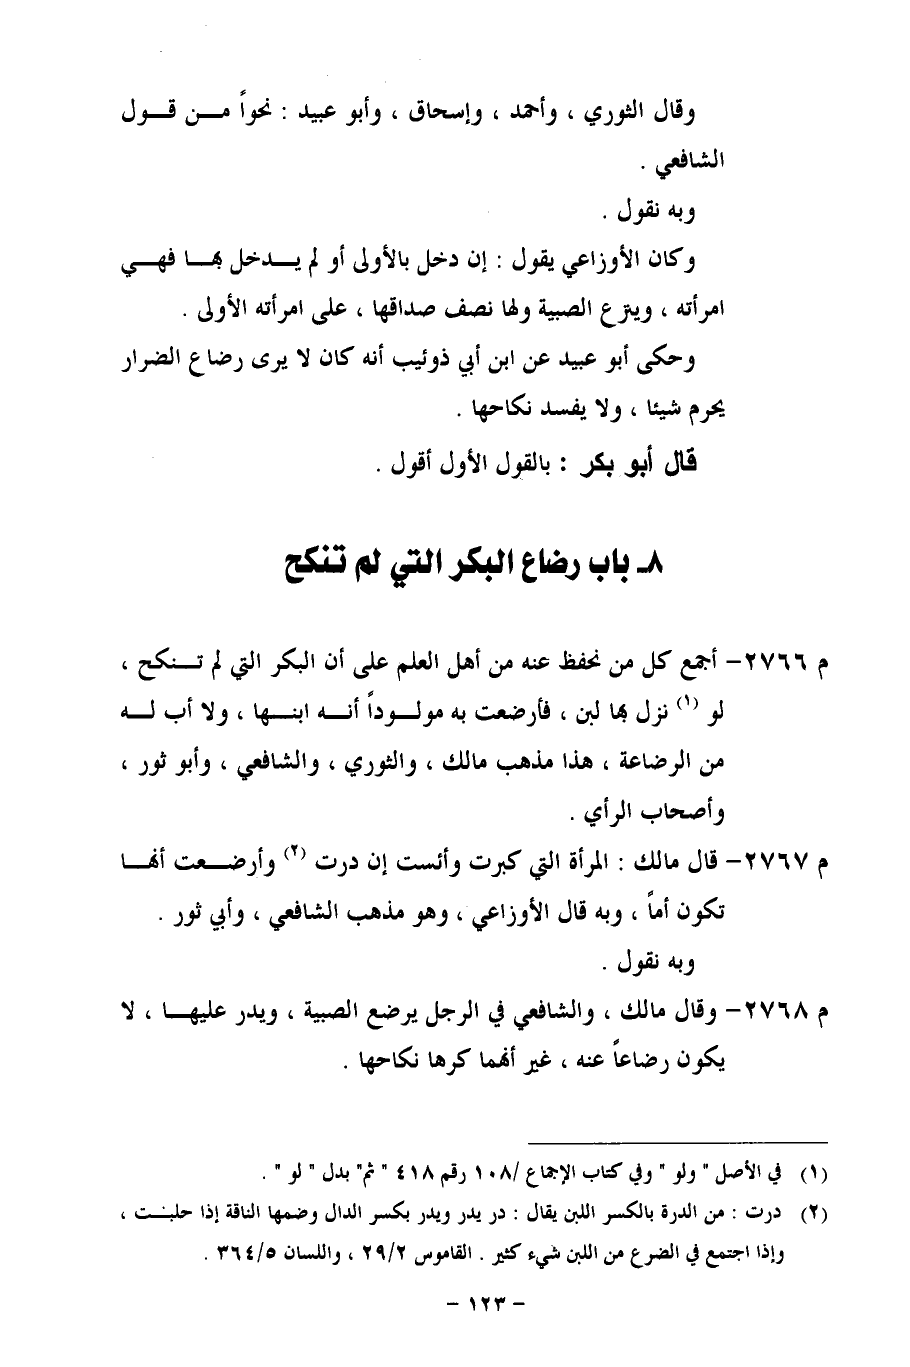 وقال الثوري ، وأحمد ، وإسحاق ، وأبو عبيد : نحواً من قول
الشافعي .
وبه نقول .
وكان الأوزاعي يقول : إن دخل بالأولى أو لم يدخل بها فهي
امرأته ، وينزع الصبية ولها نصف صداقها ، على امرأته الأولى .
وحكى أبو عبيد عن ابن أبي ذوئيب أنه كان لا يرى رضاع الضرار
يحرم شيئا ، ولا يفسد نكاحها .
قال أبو بكر : بالقول الأول أقول .
٨ـ باب رضاع البكر التي لم تنكح
م ٢٧٦٦– أجمع كل من نحفظ عنه من أهل العلم على أن البكر التي لم تنكح ،
لو (١) نزل بها لبن ، فأرضعت به مولوداً أنه ابنها ، ولا أب له
من الرضاعة ، هذا مذهب مالك ، والثوري ، والشافعي ، وأبو ثور ،
وأصحاب الرأي .
م ٢٧٦٧– قال مالك : المرأة التي كبرت وأئست إن درت (٢) وأرضعت أنها
تكون أماً ، وبه قال الأوزاعي ، وهو مذهب الشافعي ، وأبي ثور .
وبه نقول .
م ٢٧٦٨– وقال مالك ، والشافعي في الرجل يرضع الصبية ، ويدر عليها ، لا
يكون رضاعاً عنه ، غير أنهما كرها نكاحها .
(١) في الأصل " ولو " وفي كتاب الإجماع /١٠٨ رقم ٤١٨ " ثم" بدل " لو " .
(٢) درت : من الدرة بالكسر اللبن يقال : در يدر ويدر بكسر الدال وضمها الناقة إذا حلبت ،
وإذا اجتمع في الضرع من اللبن شيء كثير . القاموس ٢٩/٢ ، واللسان ٣٦٤/٥ .
– ١٢٣ –